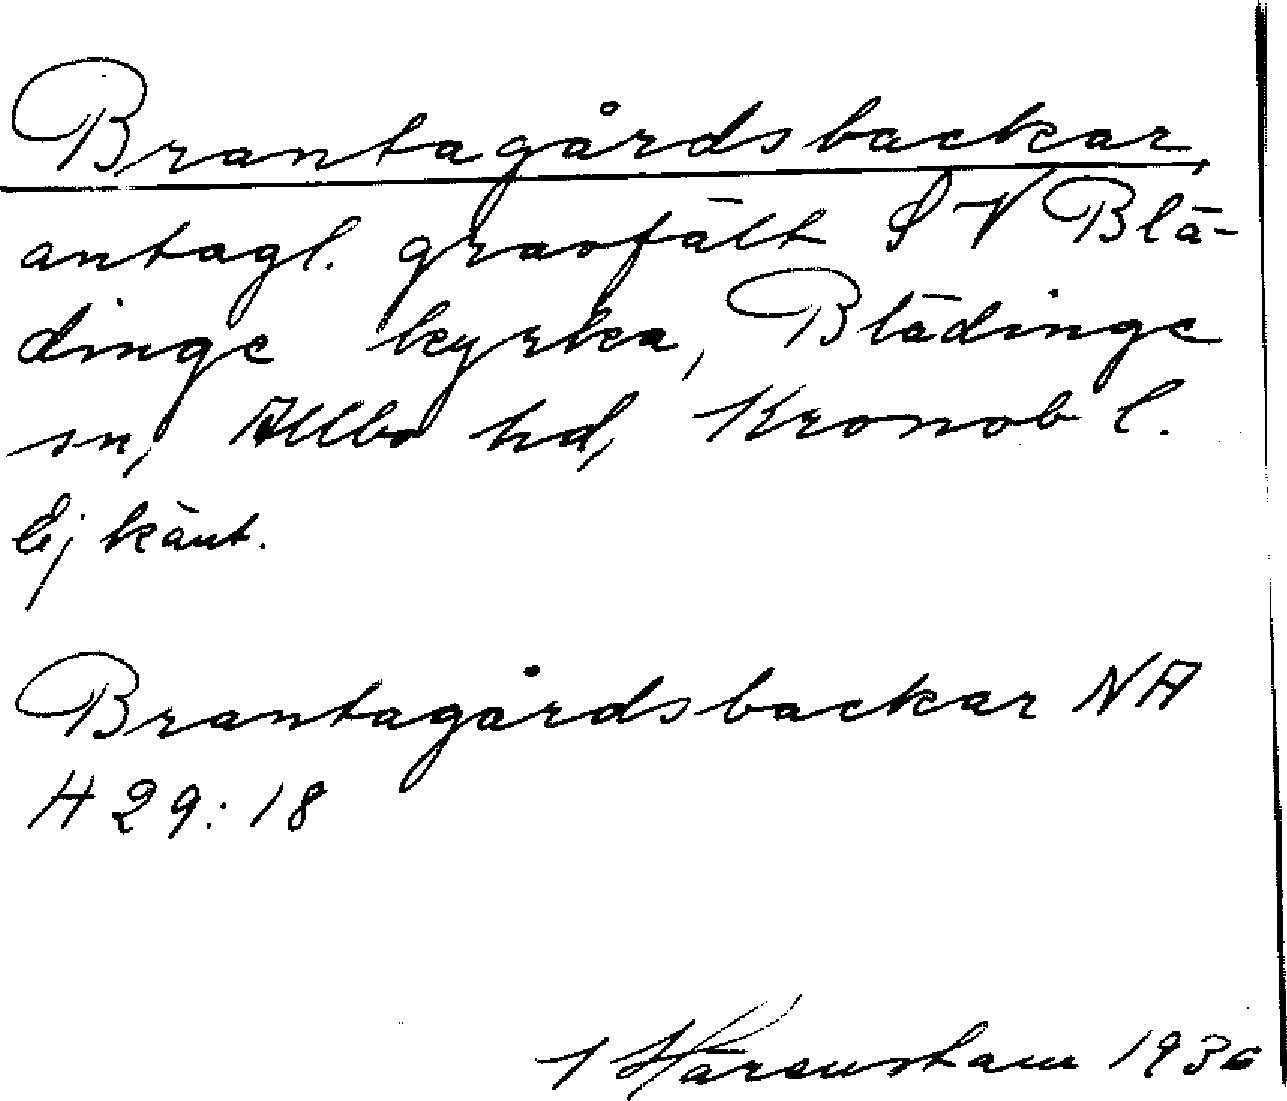 Brantagårdsbackar,
antagl. gravfält SV Blä-
dinge kyrka, Blädinge
sn, Allbo hd, Kronob l.
Ej känt.
Brantagårdsbackar NA
H 29:18
1936